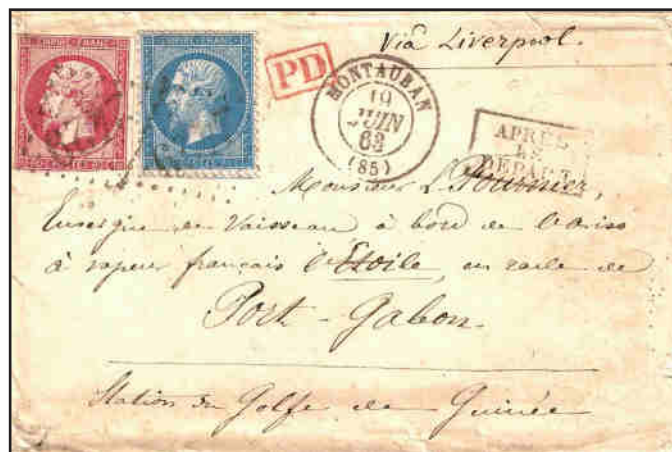 EMPIRE FRANC
EMPIRE FRANC
Via Liverpool.
PD
MONTAUBAN
19
JUIN
63
(85)
APRÈS
LE
DÉPART
Monsieur L. Fournier,
Enseigne de Vaisseau à bord de l'aviso
à vapeur français l'Étoile, en rade de
Port-Gabon.
Station du Golfe de Guinée